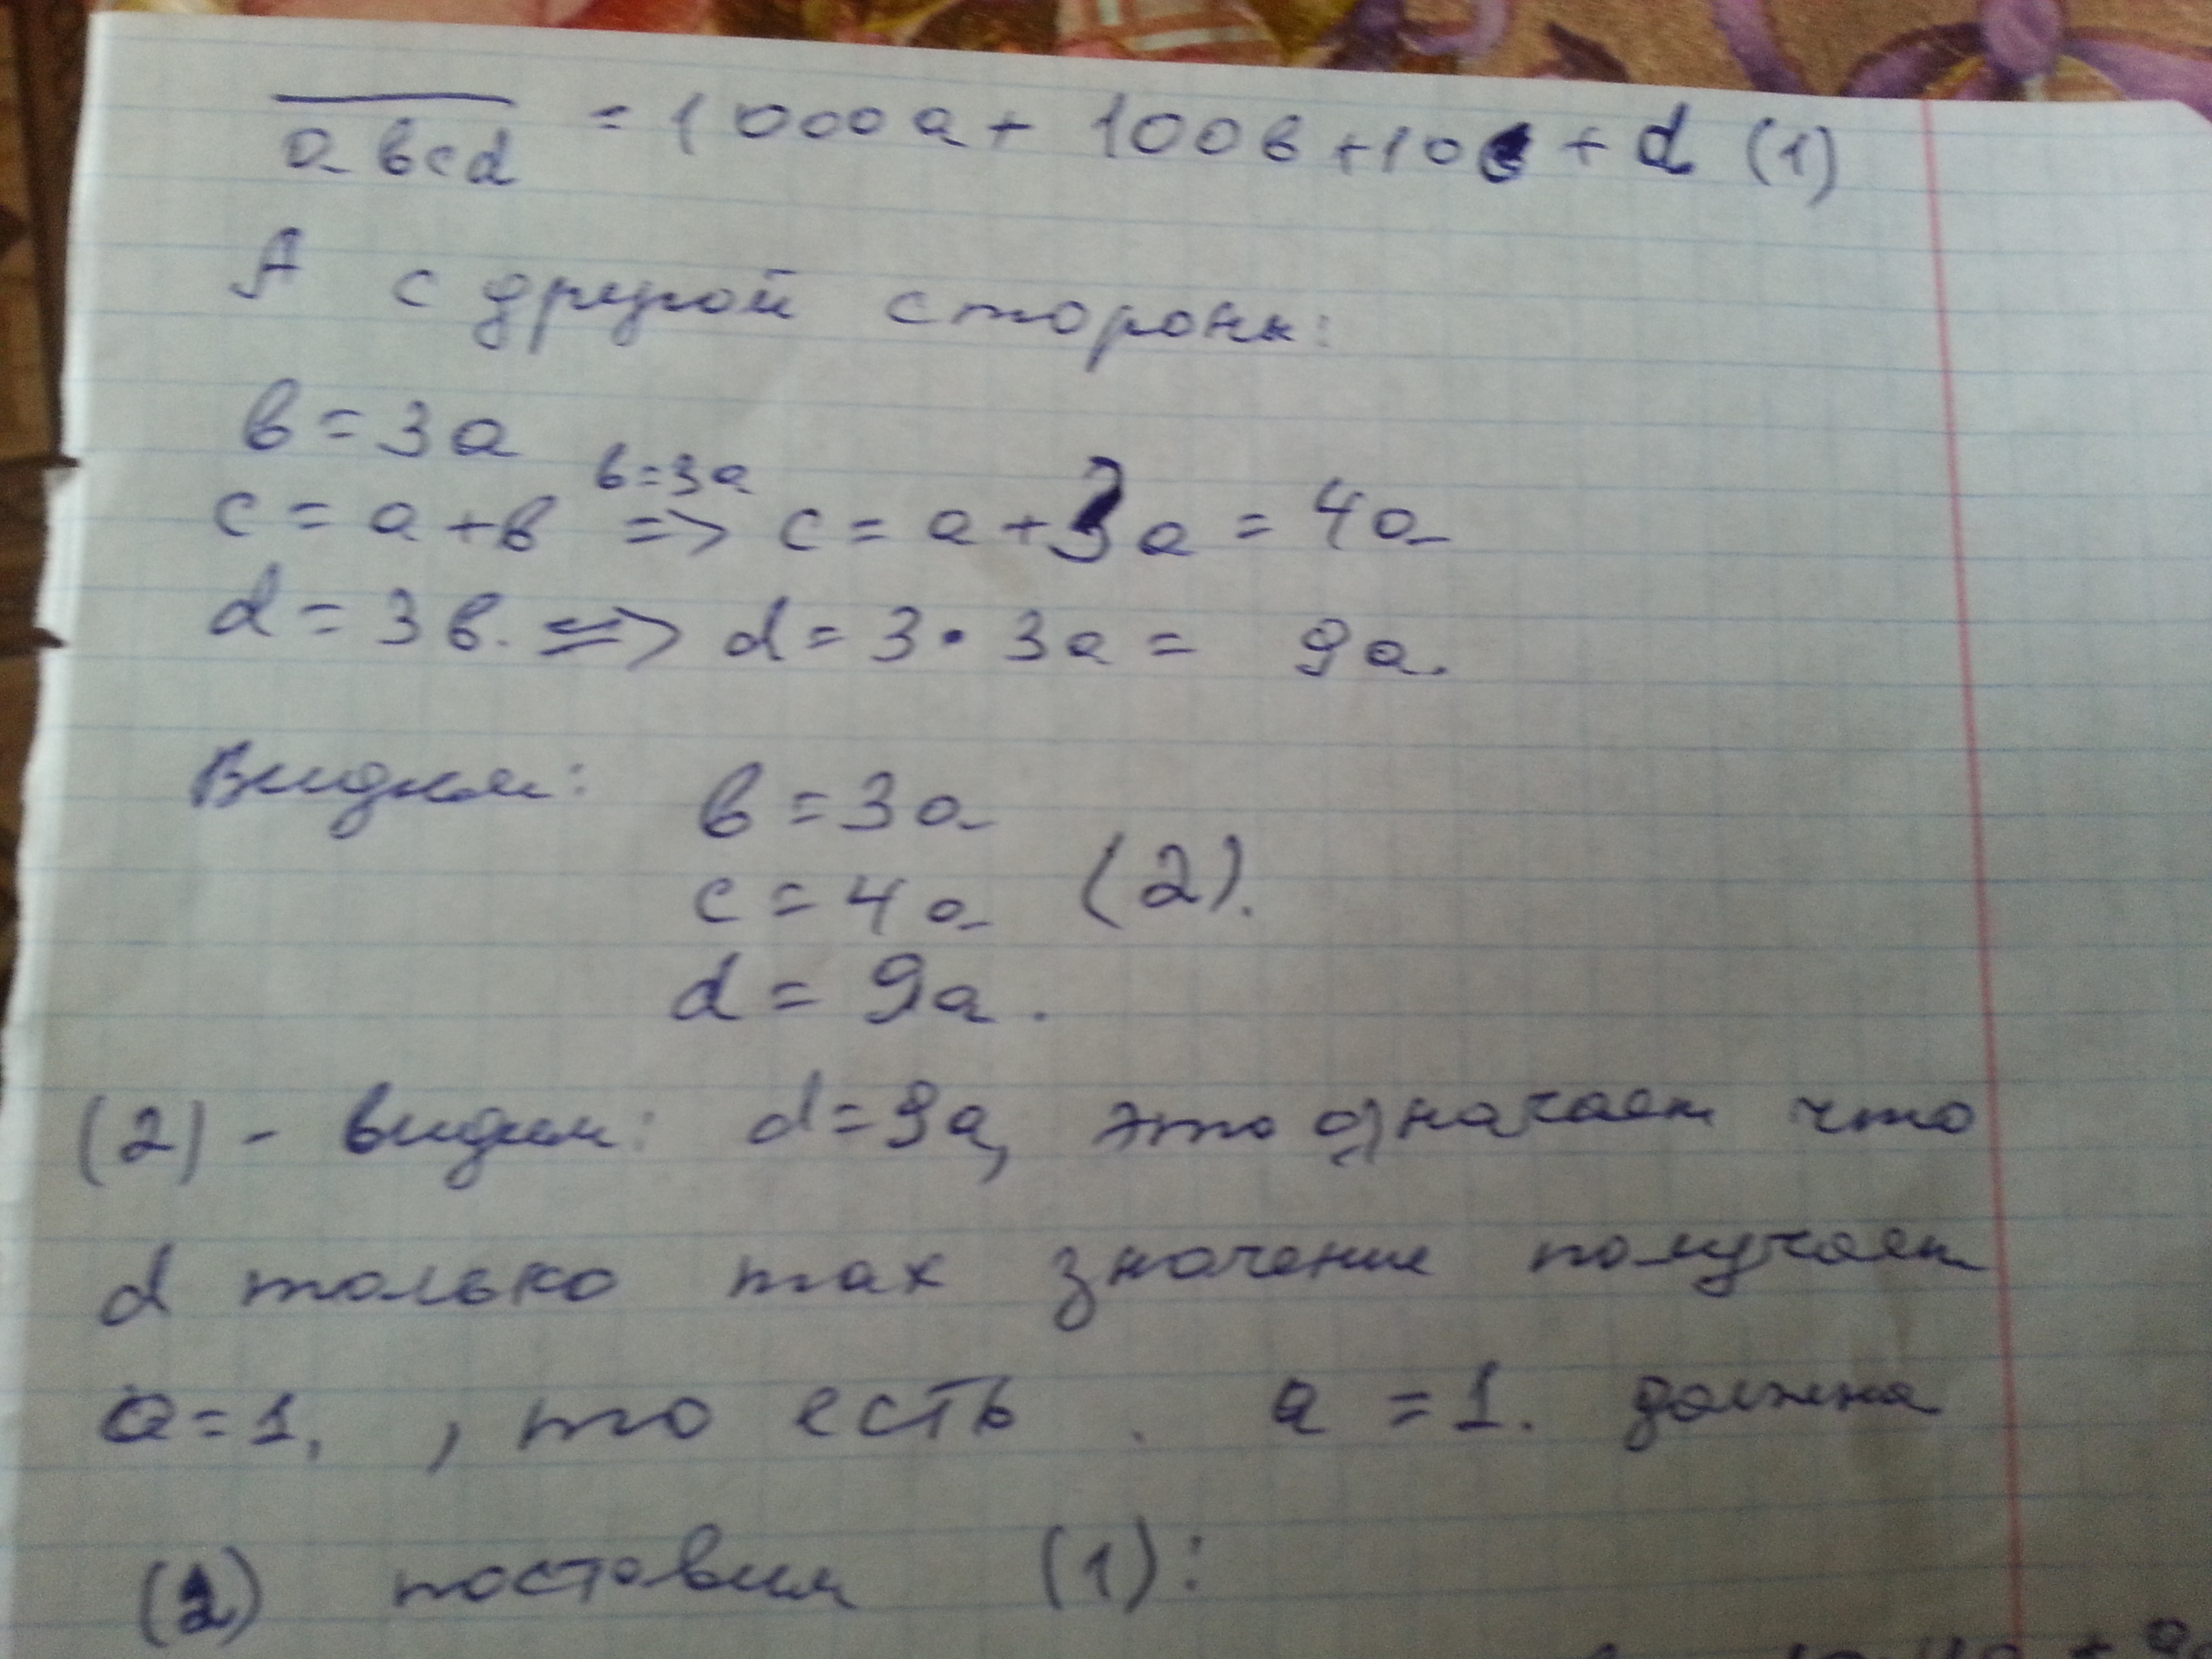 abcd = 1000a + 100b + 10c + d (1)
А с другой стороны:
b = 3a
b=3a
c = a + b => c = a + 3a = 4a
d = 3b. => d = 3 · 3a = 9a.
Видим: b = 3a
c = 4a (2).
d = 9a.
(2) - видим: d = 9a, это означает что
d только max значение получает
a = 1, , то есть . a = 1. должна
(2) поставим (1):